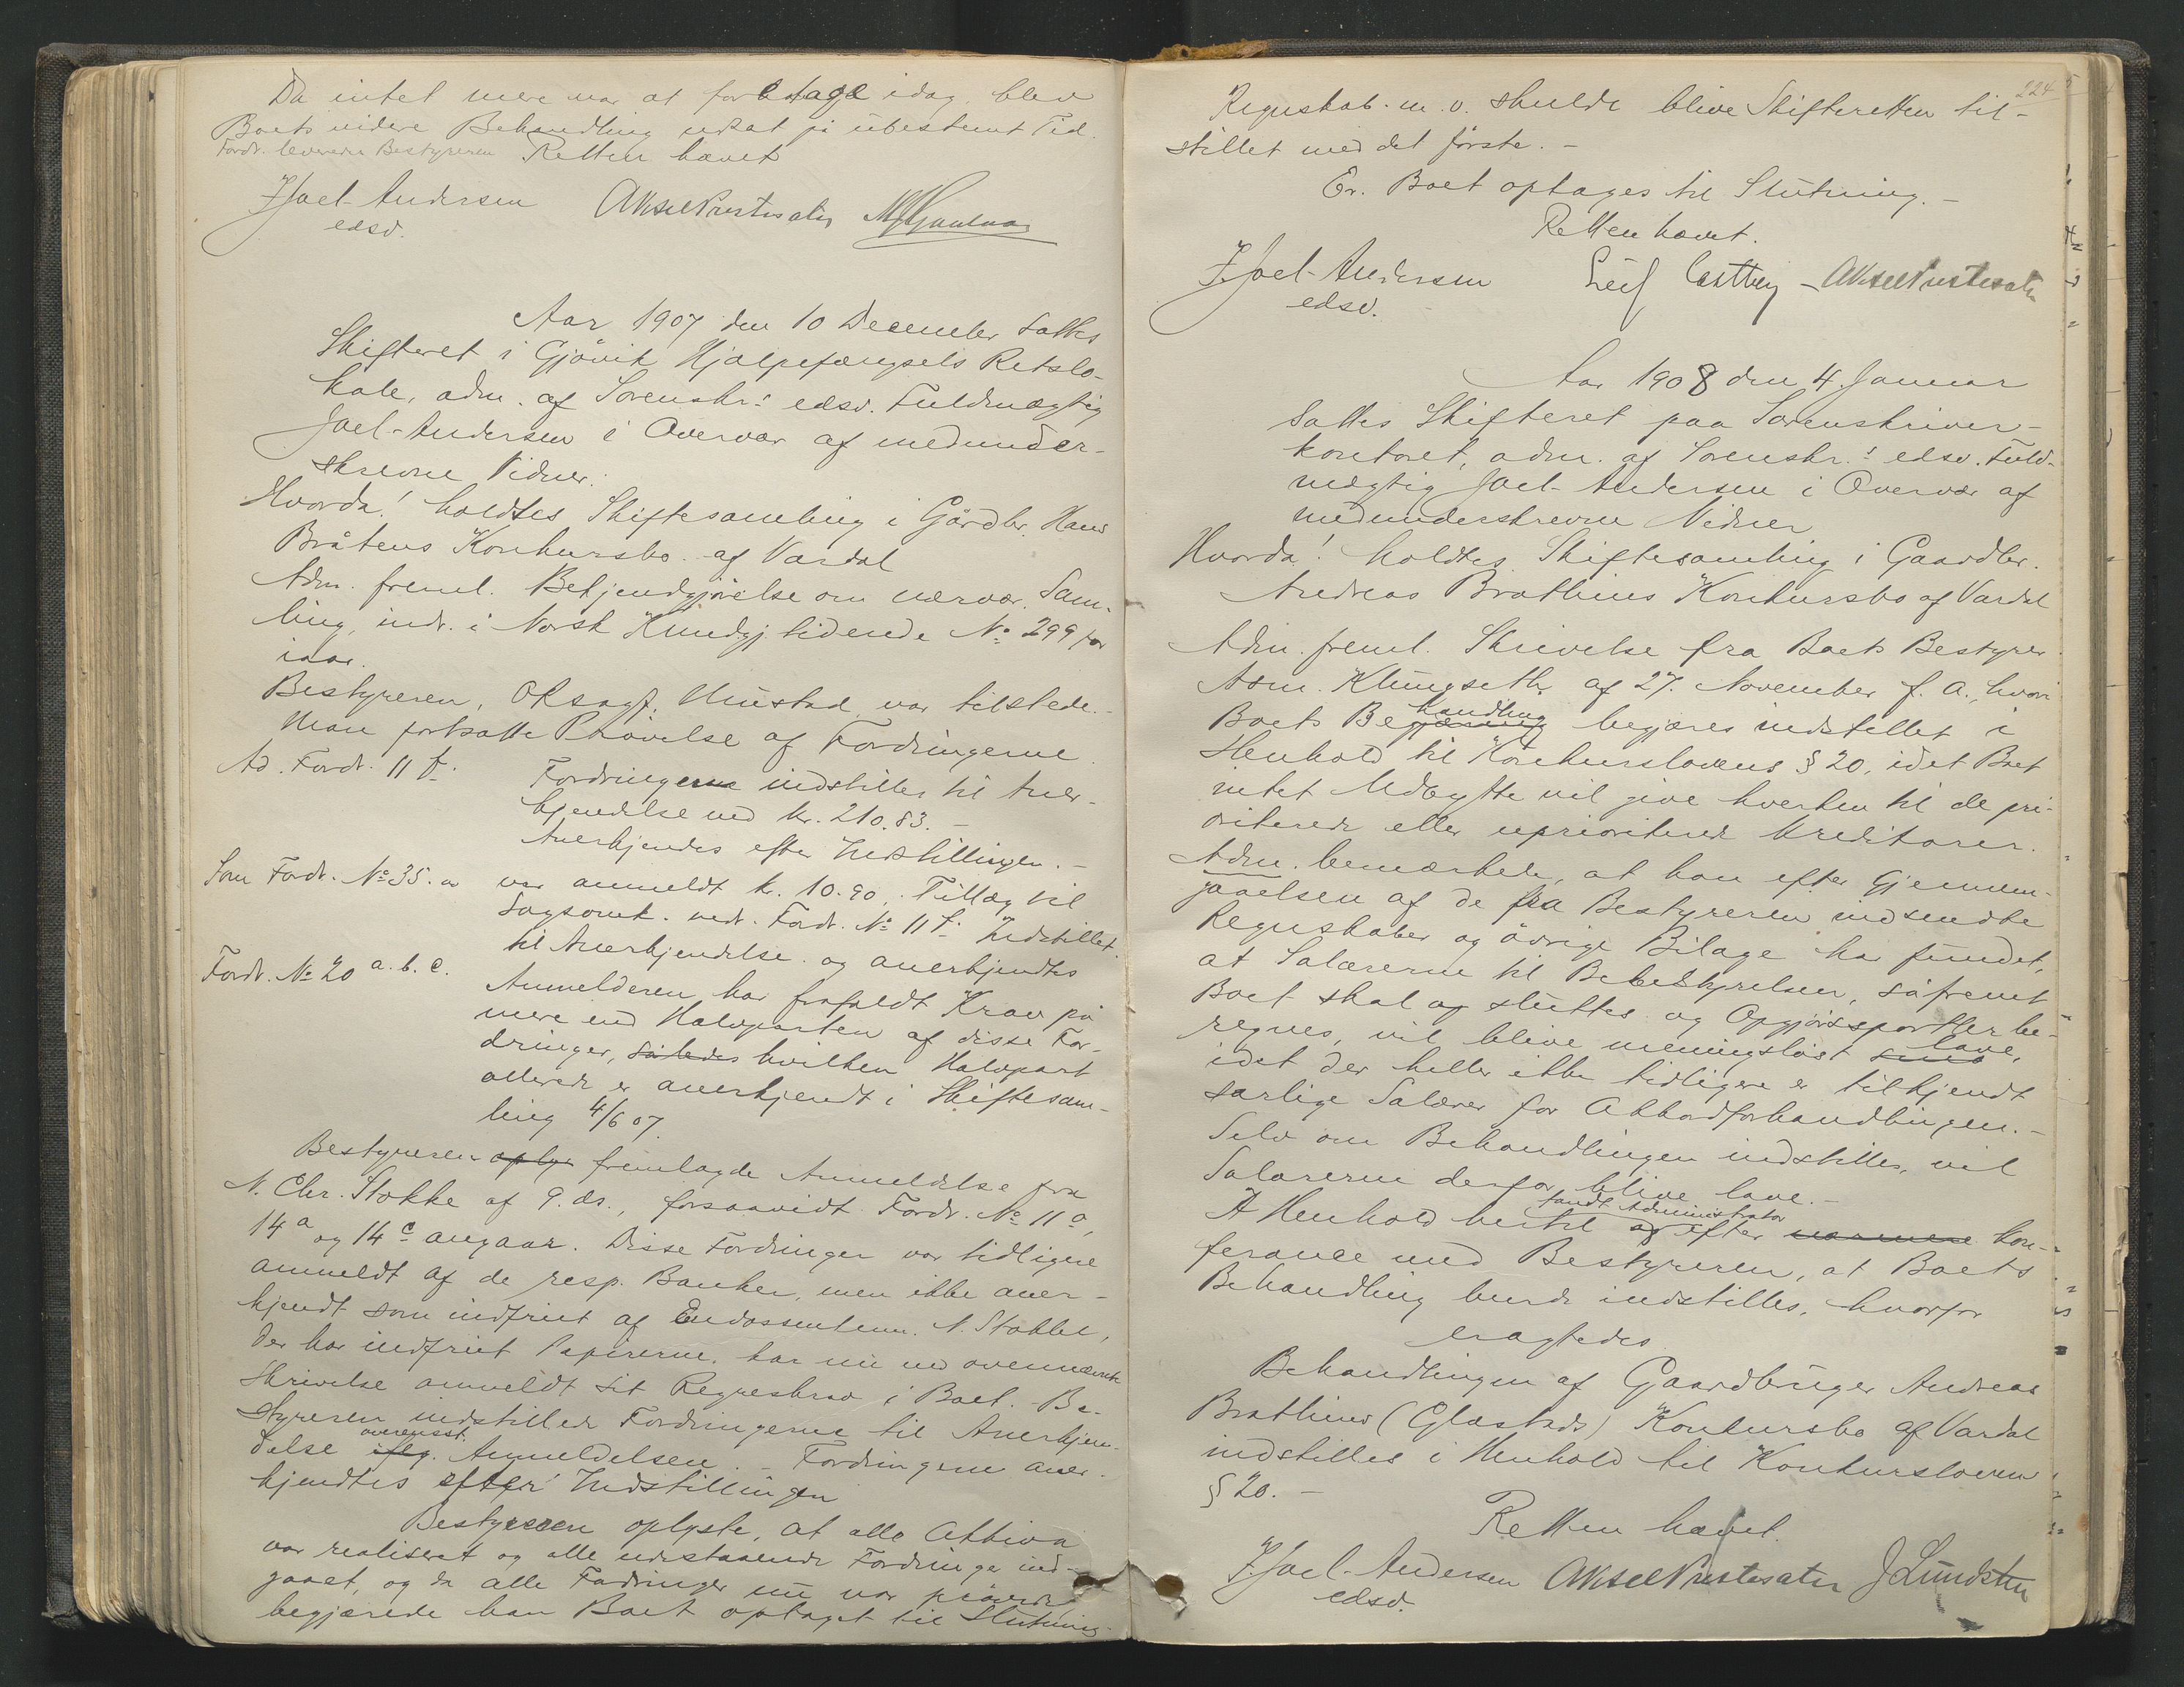 Da intet mere var at foretage idag, blev
Boets videre Behandling udsat på ubestemt Tid.
Fordr. leveredes Bestyreren Retten hævet
J. Joel-Andersen Aksel Prestesæter
edsv.
Aar 1907 den 10 December sattes
Skifteret i Gjøvik Hjælpefængsels Retslo-
kale, adm. af Sorenskr.s edsv. Fuldmægtig
Joel-Andersen i Overvær af medunder-
skrevne Vidner.
Hvorda! holdtes Skiftesamling i Gårdbr. Hans
Bråtens Konkursbo af Vardal
Adm. freml. Bekjendtgjørelse om nærvær. Sam-
ling, indr. i Norsk Kundgj.tidende No 299 for
iaar.
Bestyreren, Oksagf. Mustad var tilstede.-
Man fortsatte Prøvelse af Fordringerne.
Ad. Fordr. 11 f. Fordringerne indstilles til Aner-
kjendelse med kr. 210.83.-
Anerkjendes efter Indstillingen.-
Som Fordr. No 35. var anmeldt kr. 10.90, Tillæg til
Sagsomk. vedr. Fordr. No 11 f. Indstillet
til Anerkjendelse og anerkjendtes
Fordr. No 20 a. b. c. Anmelderen har frafaldt Krav på
mere end Halvparten af disse For-
dringer, således hvilken Halvpart
allerede er anerkjendt i Skiftesam-
ling 4/6 07.
Bestyreren oplys fremlagde Anmeldelse fra
N. Chr. Stokke af 9. ds., forsaavidt Fordr. No 11 a,
14 a og 14 c angaar. Disse Fordringer var tidligere
anmeldt af de resp. Banker, men ikke aner-
kjendt som indfriet af Endossenten. N. Stokke,
der har indfriet Papirerne, har nu ved ovennævnte
Skrivelse anmeldt sit Regreskrav i Boet. Be-
styreren indstillede Fordringerne til Anerkjen-
overensst.
delse ifølg. Anmeldelsen.- Fordringerne aner-
kjendtes efter Indstillingen
Bestyreren oplyste, at alle Aktiva
var realiseret og alle udestaaende Fordringer ind-
gaaet, og da alle Fordringer nu var prøvede
begjærede han Boet optaget til Slutning.
224
Regnskab m. v. skulde blive Skifteretten til-
stillet med det første.-
Er. Boet optages til Slutning.-
Retten hævet.
J. Joel-Andersen Leif Castberg - Aksel Prestesæter
edsv.
Aar 1908 den 4. Januar
sattes Skifteret paa Sorenskriver-
kontoret, adm. af Sorenskr.s edsv. Fuld-
mægtig Joel-Andersen i Overvær af
medunderskrevne Vidner
Hvorda! holdtes Skiftesamling i Gaardbr.
Andreas Brathius Konkursbo af Vardal
Adm. freml. Skrivelse fra Boets Bestyrer
Asm. Klungseth af 27. November f. A., hvori
handling
Boets Begjæring begjæres indstillet i
Henhold til Konkurslovens § 20, idet Boet
intet Udbytte vil give hverken til de pri-
oriterede eller uprioriterede Kreditorer.
Adm. bemærkede, at han efter Gjennem-
gaaelsen af de fra Bestyreren indsendte
Regnskaber og øvrige Bilage har fundet,
at Salærerne til Bobestyrelsen, såfremt
Boet skal og sluttes og Opgjørssportler be-
lave,
regnes, vil blive meningsløst små
idet der heller ikke tidligere er tilkjendt
særlige Salærer for Akkordforhandlingen.-
Selv om Behandlingen indstilles, vil
Salærerne derfor blive lave.-
fandt Administrator
I Henhold hertil og efter nærmere kon-
ferance med Bestyreren, at Boets
Behandling burde indstilles, hvorfor
eragtedes
Behandlingen af Gaardbruger Andreas
Brathius (Glæstads) Konkursbo af Vardal
indstilles i Henhold til Konkursloven
§ 20.-
Retten hævet.
J. Joel-Andersen Aksel Prestesæter J Lundsten
edsv.